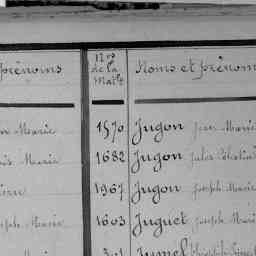 prénoms Nos de la Matle Noms et prénom
Marie 1570 Jugon Jean Marie
Marie 1682 Jugon Jules Célestin
1967 Jugon Joseph Marie
Joseph Marie 1603 Juguet Joseph Marie
Jumel